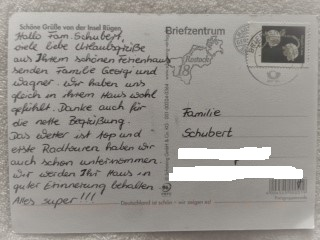 Schöne Grüße von der Insel Rügen
Hallo Fam. Schubert,
viele liebe Urlaubsgrüße
aus Ihrem schönen Ferienhaus
senden Familie Georgi und
Wagner. Wir haben uns
gleich in Ihrem Haus wohl
gefühlt. Danke auch für
die nette Begrüßung.
Das Wetter ist top und
erste Radtouren haben wir
auch schon unternommen.
Wir werden Ihr Haus in
guter Erinnerung behalten
Alles super!!!
Briefzentrum
18
Rostock
Familie
Schubert
Deutschland ist schön – wir zeigen es!